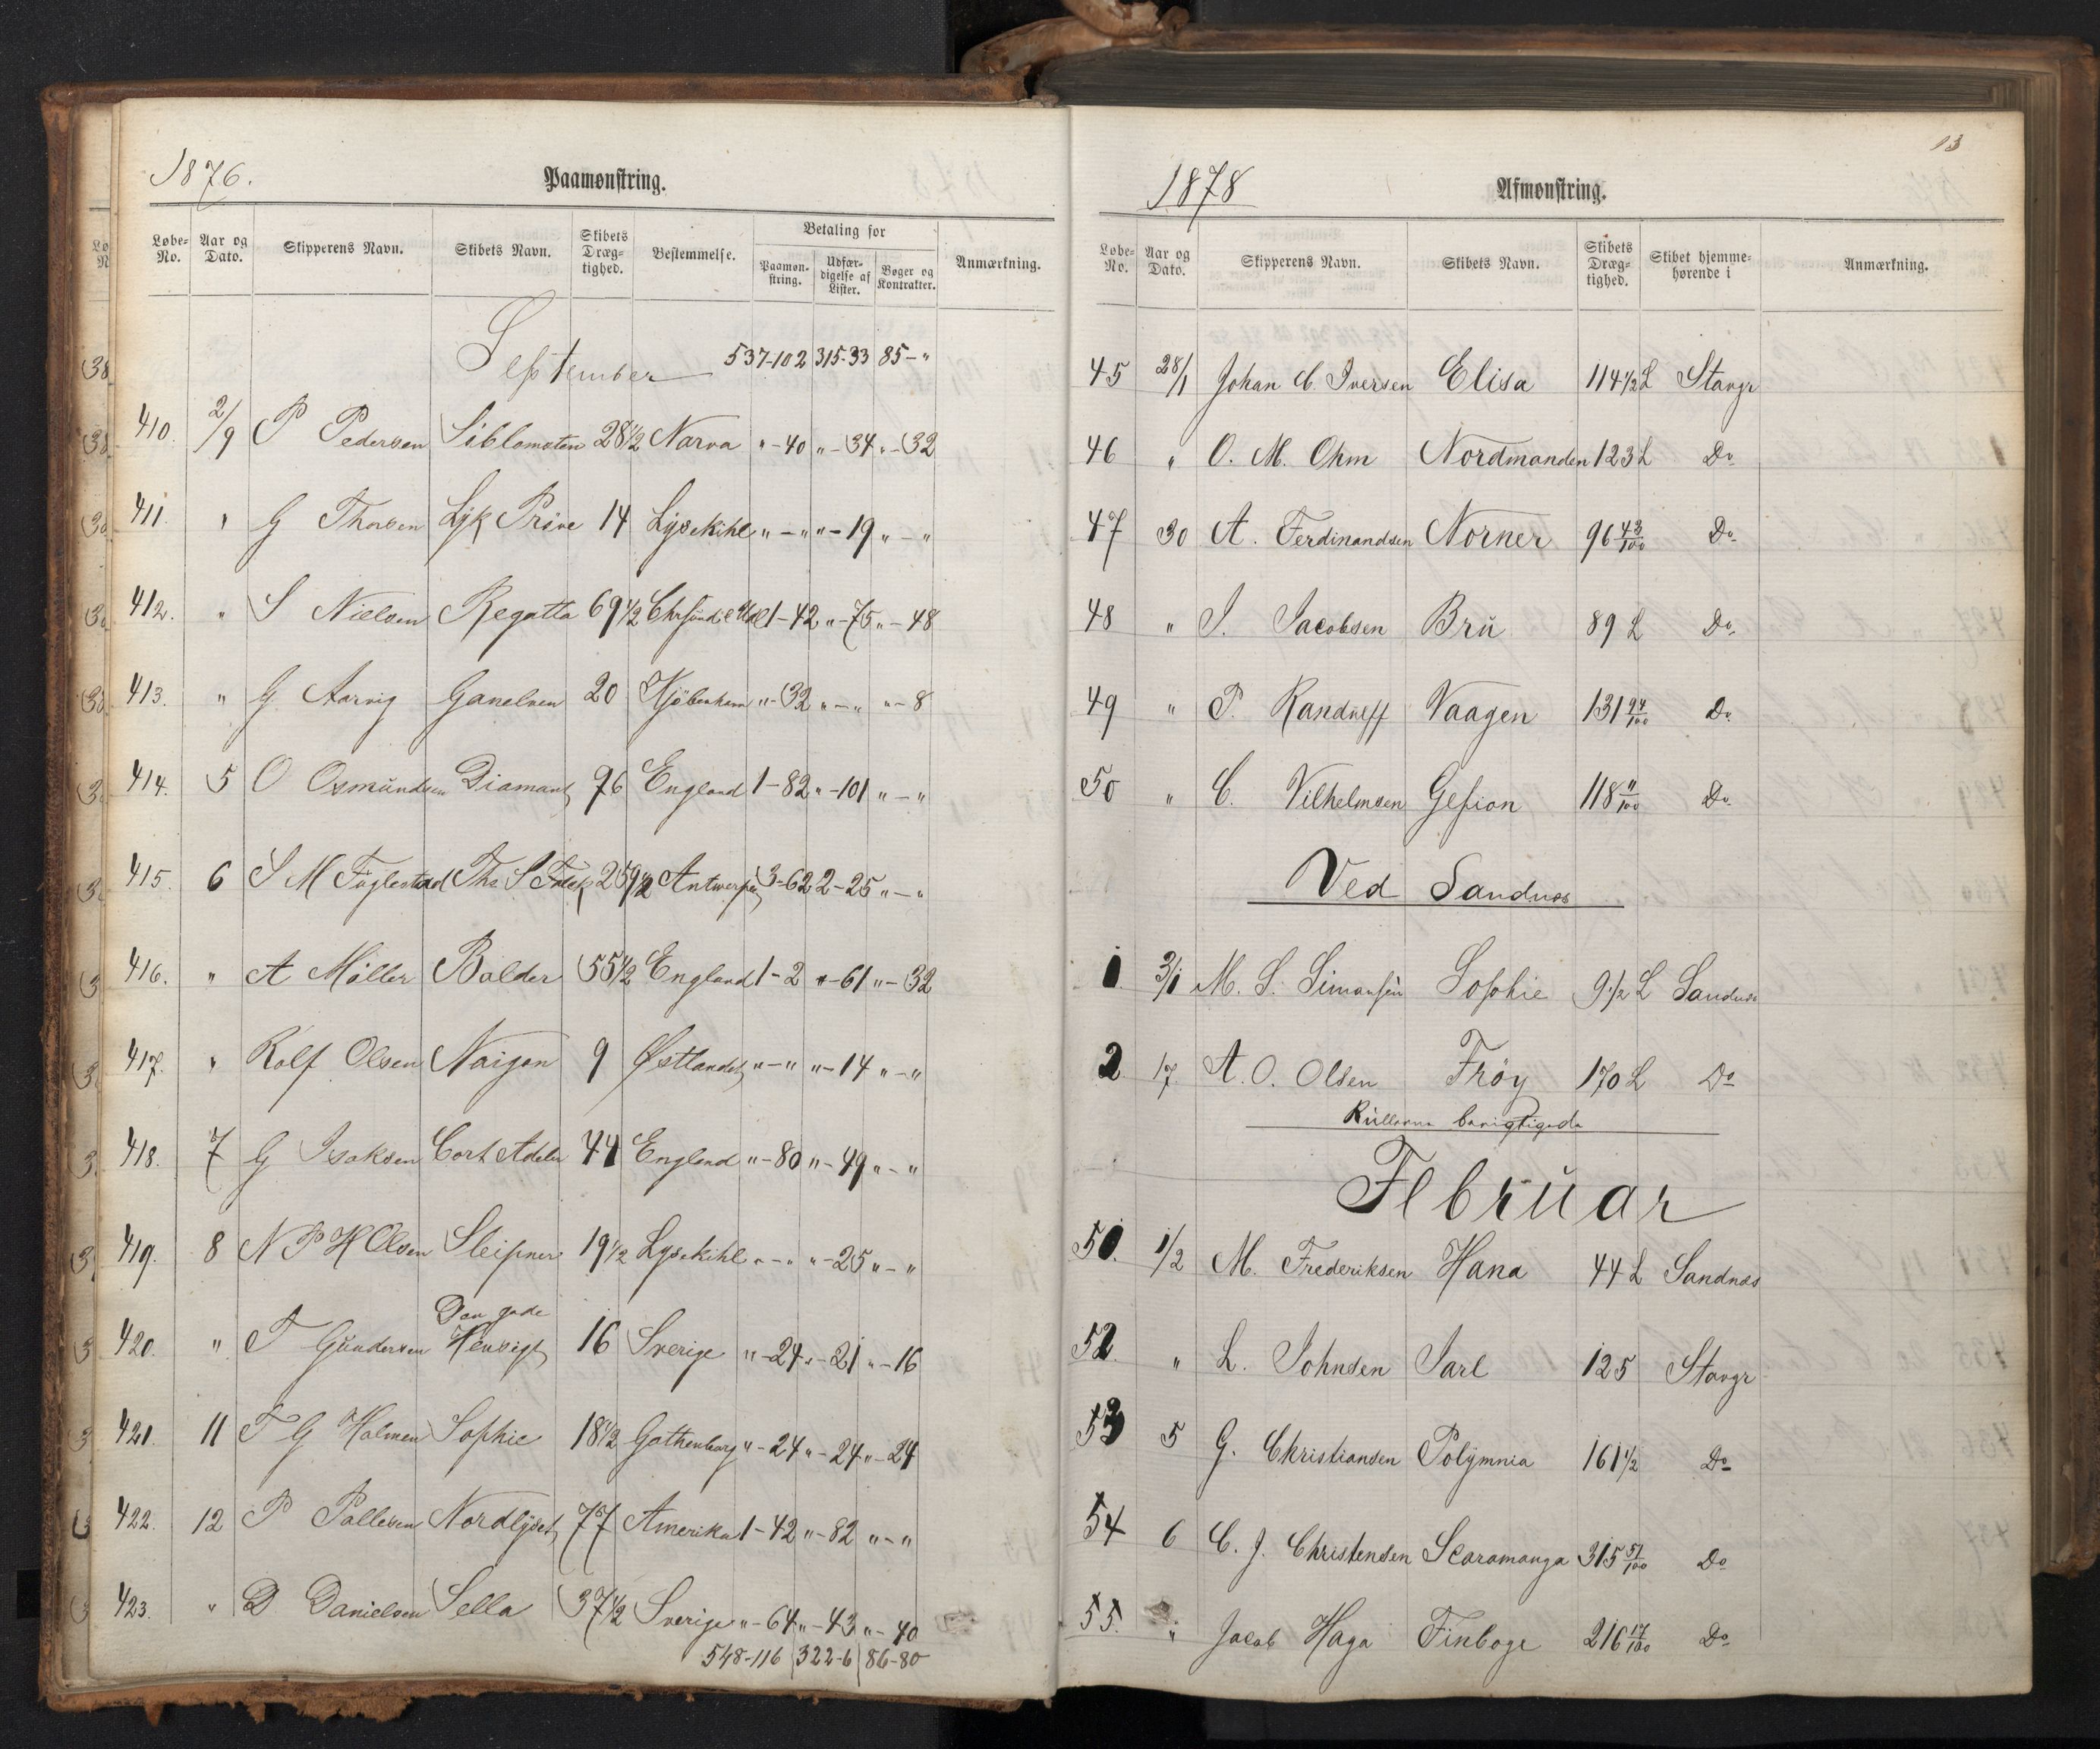 1876.
Paamønstring.
Løbe-No. Aar og Dato. Skipperens Navn. Skibets Navn. Skibets Dræg-tighed. Bestemmelse. Betaling for Paamøn-string. Udfær-digelse af Lister. Bøger og Kontrakter. Anmærkning.
September 537-102 315-33 85-"
410. 2/9 P Pedersen Siblomsten 28 1/2 Narva "-40 "-34 "-32
411. " G Thorsen Lyk Prøve 14 Lysekihl "-" "-19 "-"
412. " S Nielsen Regatta 69 1/2 1-42 "-75 "-48
413. " G Aarvig Ganelven 20 Kjöbenhavn "-32 "-" "-8
414. 5 O Osmundsen Diamant 76 England 1-82 "-101 "-"
415. 6 S M Fuglestad Ths S Falck 259 1/2 Antwerpen 3-62 2-25 "-"
416. " A Möller Balder 55 1/2 England 1-2 "-61 "-32
417. " Rolf Olsen Naigon 9 Østlandet "-" "-14 "-"
418. 7 G Isaksen Cort Adeler 44 England "-80 "-49 "-"
419. 8 N P H Olsen Sleipner 19 1/2 Lysekihl "-" "-25 "-"
420. " T Gundersen Den gode Hensigt 16 Sverige "-24 "-21 "-16
421. 11 T G Holmen Sophie 18 1/2 Gothenborg "-24 "-24 "-24
422. 12 P Pallesen Nordlyset 77 Amerika 1-42 "-82 "-"
423. " D Danielsen Sella 37 1/2 Sverige "-64 "-43 "-40
548-116 322-6 86-80
13
1878
Afmønstring.
Løbe-No. Aar og Dato. Skipperens Navn. Skibets Navn. Skibets Dræg-tighed. Skibet hjemme-hørende i Anmærkning.
45 28/1 Johan C. Iversen Elisa 114 1/2 L Stavgr
46 " O. M. Ohm Nordmanden 123 L Do
47 30 A. Ferdinandsen Norner 96 43/100 Do
48 " J. Jacobsen Bru 89 L Do
49 " P. Randulff Vaagen 131 94/100 Do
50 " C. Vilhelmsen Gefion 118 11/100 Do
Ved Sandnes
1. 3/1 M. S. Simonsen Sophie 9 1/2 L Sandnes
2 17 A. O. Olsen Fröy 170 L Do
Rullerne berigtigede
Februar
51. 1/2 M. Frederiksen Hana 44 L Sandnes
52. " L. Johnsen Jarl 125 Stavgr
53 5 G. Christiansen Polymnia 161 1/2 Do
54 6 C. J. Christensen Scaramanga 315 51/100 Do
55. " Jacob Haga Finboge 216 17/100 Do